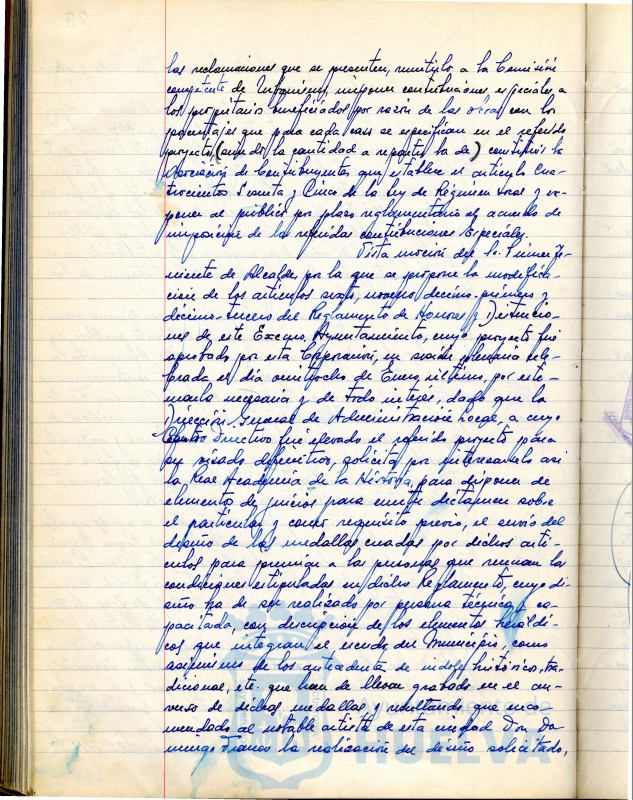 las reclamaciones que se presenten, remitirlo a la Comisión
competente de Urbanismo, imponer contribuciones especiales a
los propietarios beneficiados por razón de las obras con los
porcentajes que para cada caso se especifican en el referido
proyecto (siendo la cantidad a repartir la de) constituir la
Asociación de Contribuyentes que establece el artículo Cua-
trocientos Sesenta y Cinco de la Ley de Régimen Local y ex-
poner al público por plazo reglamentario el acuerdo de
imposición de las referidas contribuciones Especiales.
Vista moción del Sr. Primer Te-
niente de Alcalde, por la que se propone la modifica-
ción de los artículos sexto, noveno, décimo-primero y
décimo-tercero del Reglamento de Honores y Distincio-
nes de este Excmo. Ayuntamiento, cuyo proyecto fué
aprobado por esta Corporación, en sesión plenaria cele-
brada el día veintiocho de Enero último, por esti-
marla necesaria y de todo interés, dado que la
Dirección General de Administración Local, a cuyo
Centro Directivo fué elevado el referido proyecto para
su visado definitivo, solicita por interesarlo así
la Real Academia de la Historia, para disponer de
elementos de juicios para emitir dictamen sobre
el particular y como requisito previo, el envío del
diseño de las medallas creadas por dichos artí-
culos para premiar a las personas que reunan las
condiciones estipuladas en dicho Reglamento, cuyo di-
seño ha de ser realizado por persona técnica y ca-
pacitada, con descripción de los elementos heráldi-
cos que integran el escudo del Municipio, como
asimismo de los antecedentes de índole histórico, tra-
dicional, etc. que han de llevar grabado en el an-
verso de dichas medallas y resultando que enco-
mendado al notable artista de esta ciudad Don Do-
mingo Franco la realización del diseño solicitado,
HUELVA